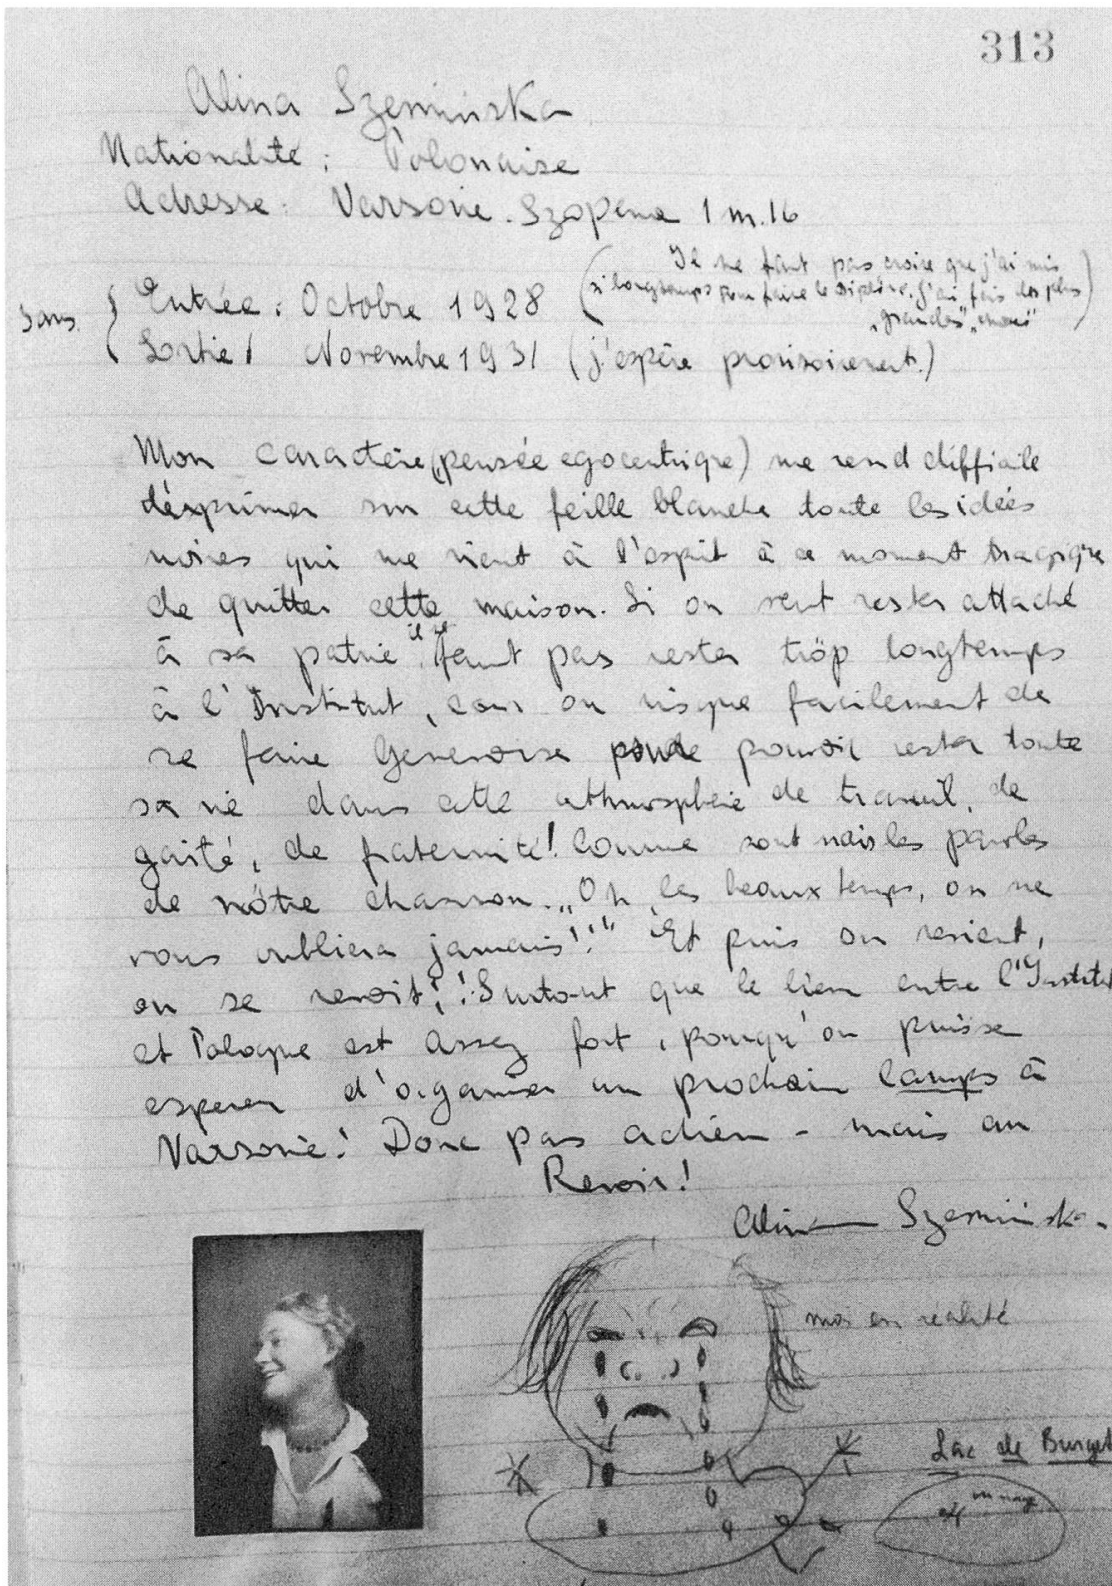 313
Alina Szemińska
Nationalité : Polonaise
Adresse : Varsovie . Szopena 1 m. 16
(Il ne faut pas croire que j'ai mis
si longtemps pour faire le Diplôme, j'ai fais des plus
"grandes"
3 ans { Entrée : Octobre 1928
Sortie : Novembre 1931 (j'espère provisoirement.)
Mon caractère (pensée egocentrique) me rend difficile
d'exprimer sur cette feille blanche toute les idées
noires qui me vient à l'esprit à ce moment tragique
de quitter cette maison. Si on veut rester attaché
à sa patrie il ne faut pas rester trop longtemps
à l'Institut, car on risque facilement de
se faire Genevoise pour pouvoir rester toute
sa vie dans cette athmosphère de travail, de
gaité, de fraternité! Comme sont vrais les paroles
de nôtre chanson. „Oh, les beaux temps, on ne
vous oubliera jamais!!" Et puis on revient,
on se revoit! Surtout que le lien entre l'Institut
et Pologne est assez fort, pourqu'on puisse
esperer d'organiser un prochain camps à
Varsovie! Donc pas adieu - mais au
Revoir!
Alina Szemińska.
moi en réalité
Lac de Burget